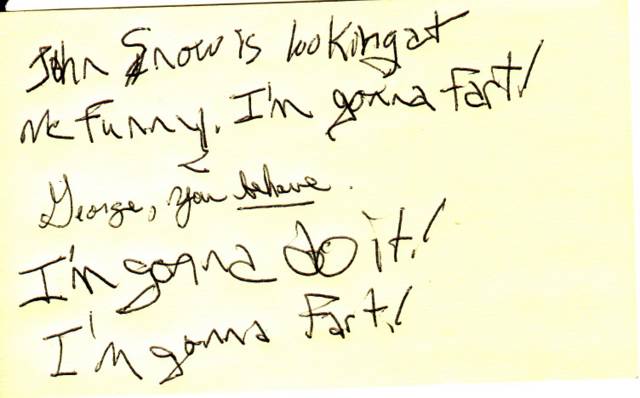 John Snow is looking at
me funny. I'm gonna fart!
George, you behave.
I'm gonna do it!
I'm gonna fart!